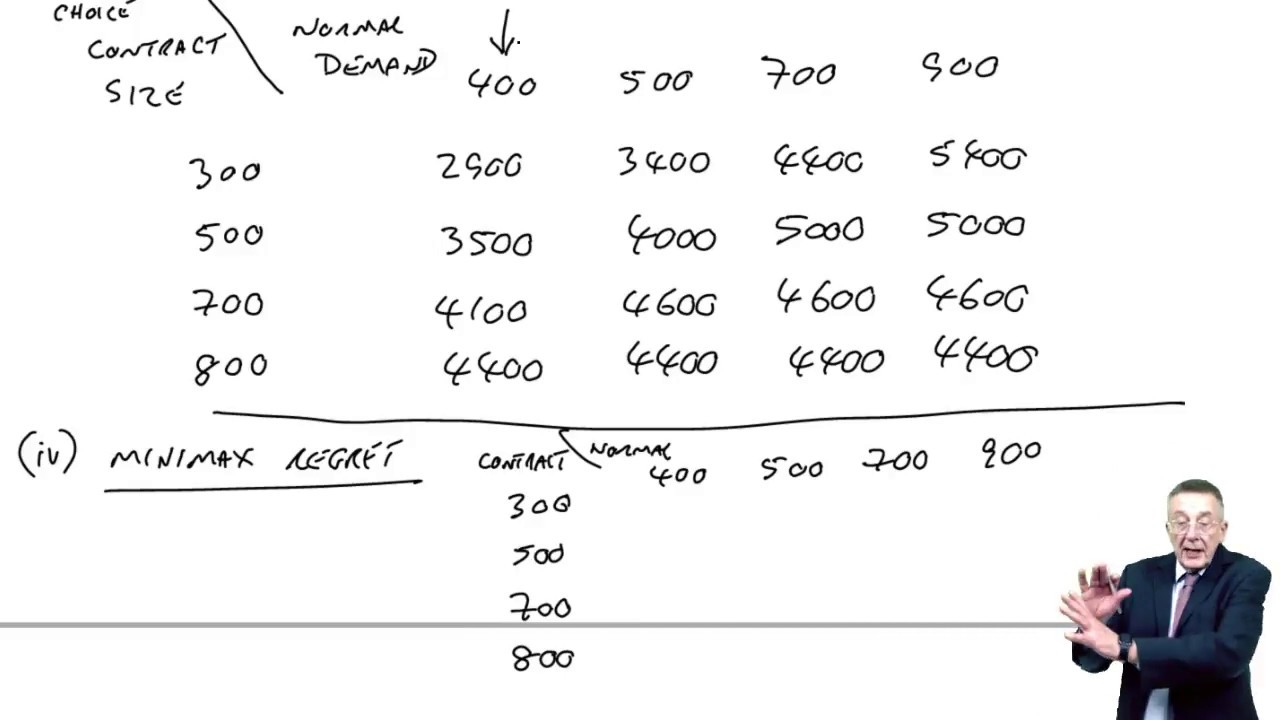 CHOICE
CONTRACT
SIZE
NORMAL
DEMAND
400 500 700 900
300 2900 3400 4400 5400
500 3500 4000 5000 5000
700 4100 4600 4600 4600
800 4400 4400 4400 4400
(iv) MINIMAX REGRET
CONTRACT NORMAL
400 500 700 900
300
500
700
800